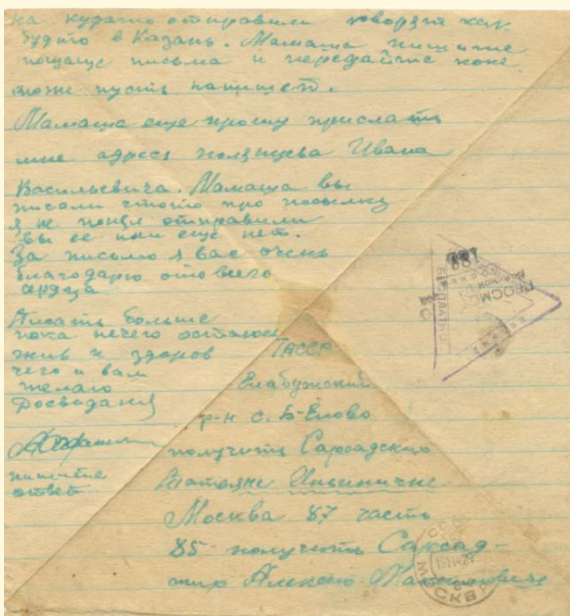 на курачно отправили говорят как
будто в Казань. Мамаша пишите
почаще письма и передайте коке
тоже пусть напишет.
Мамаша еще прошу прислать
мне адрес Ивана
Васильевича. Мамаша вы
писали чтото про посылку
я не понял отправили
вы ее или еще нет.
За письмо я вас очень
благодарю от всего
сердца
Писать больше
пока нечего остаюсь
жив и здоров
чего и вам
желаю
Досвидания
пишите
ответ
ТАССР
Елабужский
р-н с. Б-Елово
получить
Татьяне Ильиничне
Москва 87 часть
85 получить
Алексею
БЕСПЛАТНО
МОСКВА